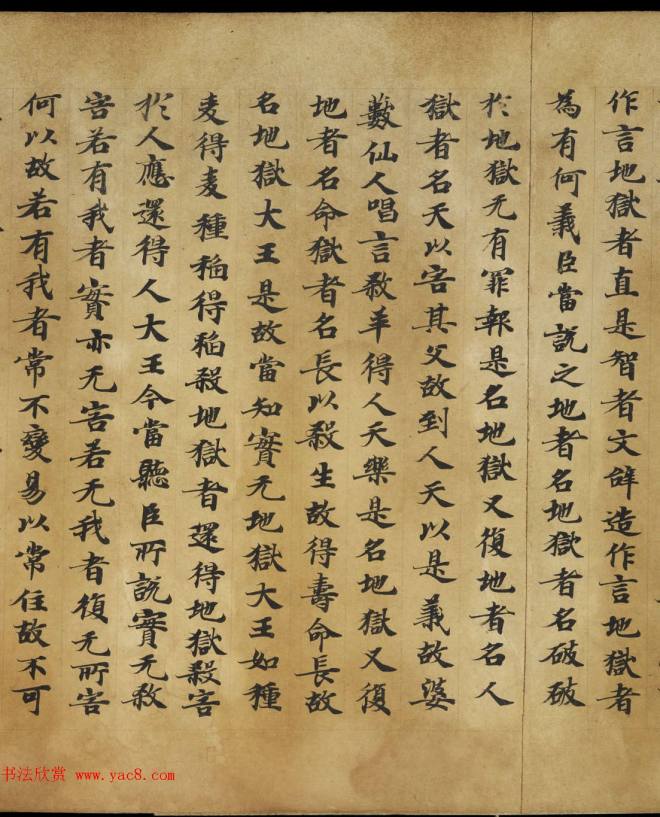 作言地獄者直是智者文辝造作言地獄者
為有何義臣當說之地者名地獄者名破破
扵地獄无有罪報是名地獄又復地者名人
獄者名天以害其父故到人天以是義故婆
藪仙人唱言煞羊得人天樂是名地獄又復
地者名命獄者名長以殺生故得壽命長故
名地獄大王是故當知實无地獄大王如種
麦得麦種稻得稻殺地獄者還得地獄殺害
扵人應還得人大王今當聽臣所說實无煞
害若有我者實亦无害若无我者復无所害
何以故若有我者常不變易以常住故不可
书法欣赏 www.yac8.com